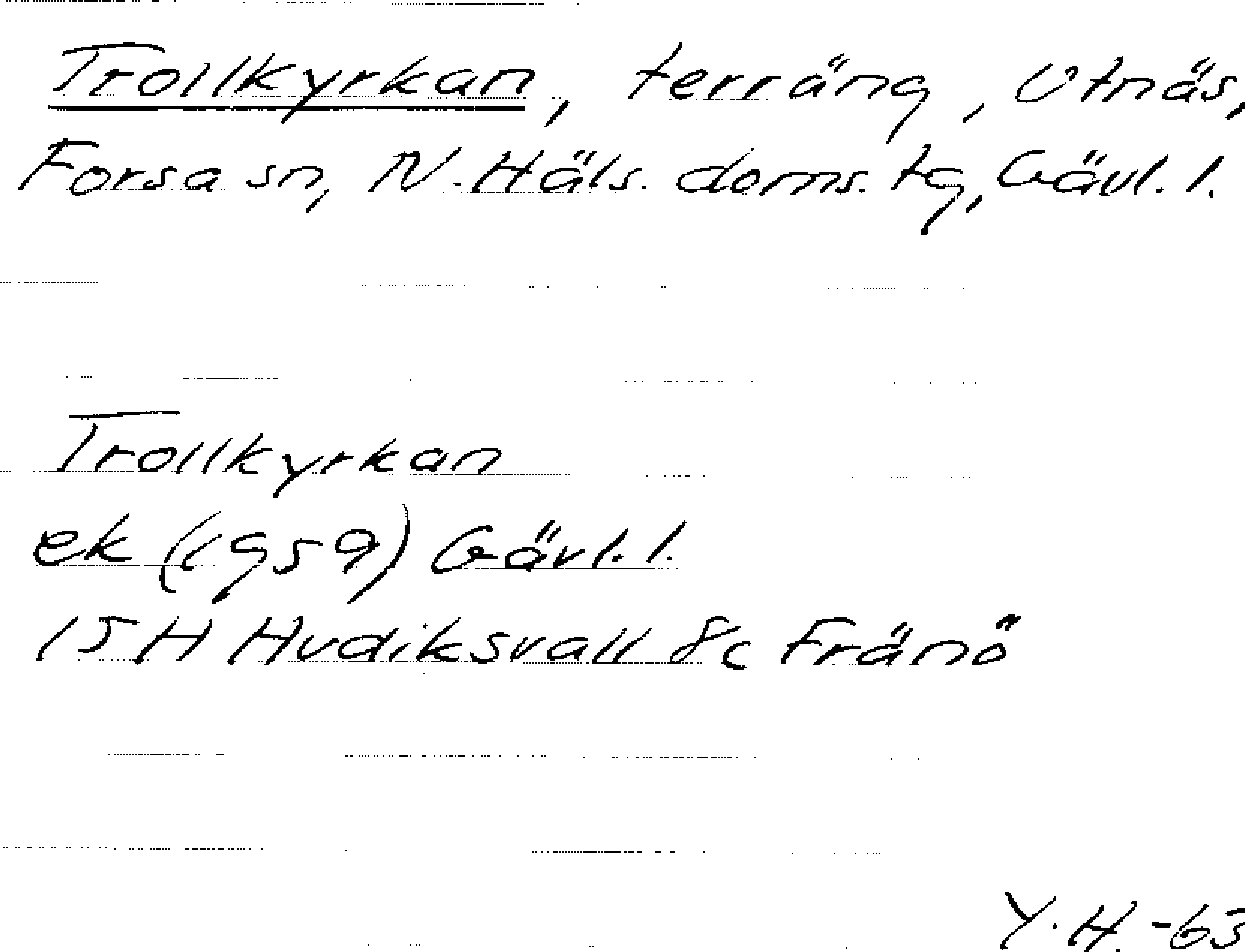 Trollkyrkan, terräng, Utnäs,
Forsa sn, N. Häls. doms. tg, Gävl. l.
Trollkyrkan
ek (1959) Gävl. l.
15H Hudiksvall 8c Fränö
Y. H. -63